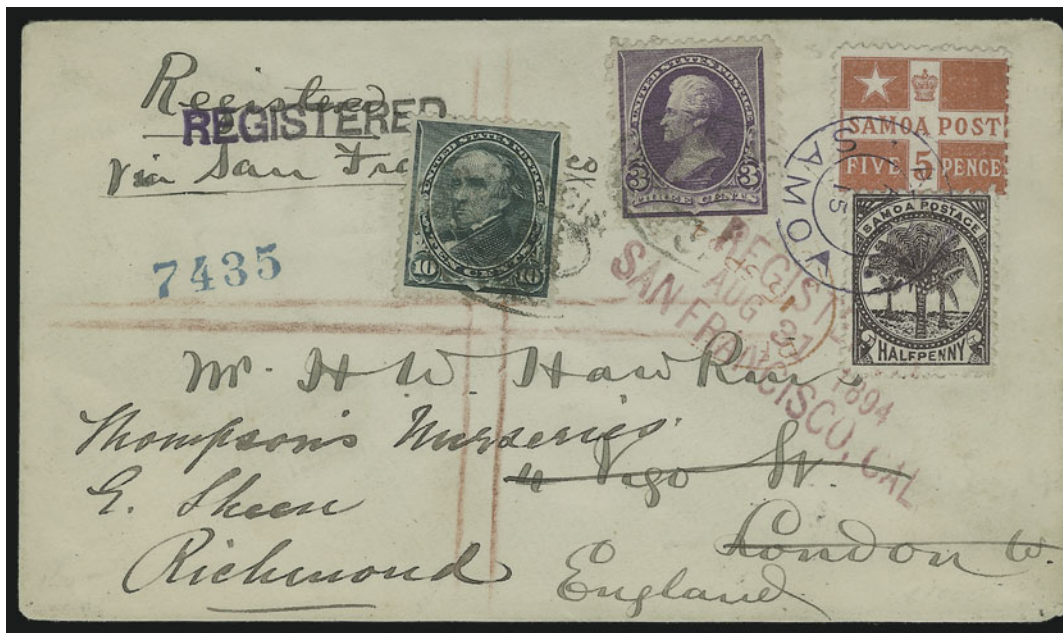 Registered
REGISTERED
via San Fra
7435
UNITED STATES POSTAGE
10 TEN CENTS 10
UNITED STATES POSTAGE
3 3
THREE CENTS
SAMOA POST
FIVE 5 PENCE
SAMOA
15
SAMOA POSTAGE
HALFPENNY
REGISTERED
AUG 31
1894
SAN FRANCISCO, CAL
Mr. H W. Hawkins
Thompson's Nurseries.
4 Vigo St.
E. Sheen
London W.
Richmond
England